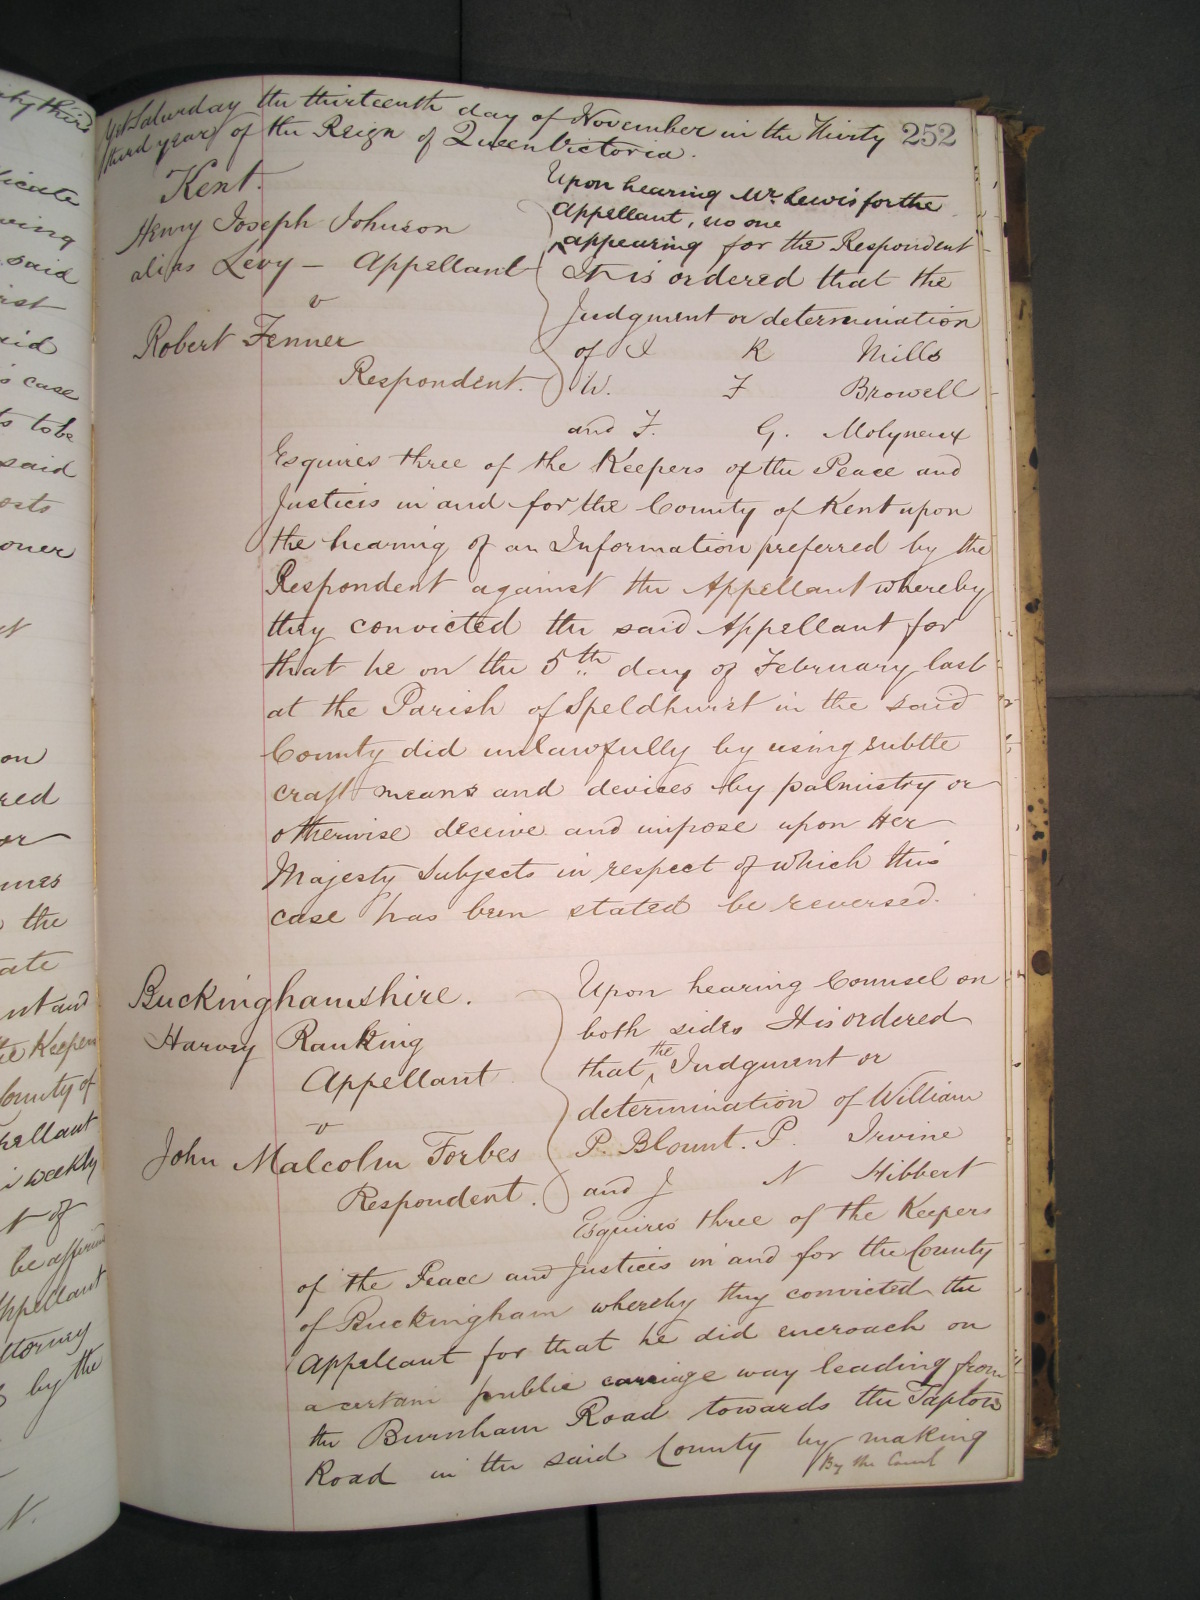 Yet Saturday the thirteenth day of November in the Thirty 252
third year of the Reign of Queen Victoria.
Kent.
Henry Joseph Johnson
alias Levy — Appellant
v
Robert Fenner
Respondent.
Upon hearing Mr. Lewis for the
Appellant, no one
appearing for the Respondent
It is ordered that the
Judgment or determination
of I R Mills
W. F Browell
and F. G. Molyneux
Esquires three of the Keepers of the Peace and
Justices in and for the County of Kent upon
the hearing of an Information preferred by the
Respondent against the Appellant whereby
they convicted the said Appellant for
that he on the 5th day of February last
at the Parish of Speldhurst in the said
County did unlawfully by using subtle
craft means and devices by palmistry or
otherwise deceive and impose upon Her
Majesty Subjects in respect of which this
case has been stated be reversed.
Buckinghamshire.
Harvey Ranking
Appellant
v
John Malcolm Forbes
Respondent.
Upon hearing Counsel on
both sides It is ordered
that the Judgment or
determination of William
P. Blount. P. Irvine
and J N Hibbert
Esquires three of the Keepers
of the Peace and Justices in and for the County
of Buckingham whereby they convicted the
Appellant for that he did encroach on
a certain public carriage way leading from
the Burnham Road towards the Taplow
Road in the said County by making
By the Court
icate
ving
said
aid
case
to be
said
osts
oner
on
red
or
the
ate
nt and
the Keepers
County of
pellant
weekly
t of
be affirmed
Appellant
ttorney
by the
N.